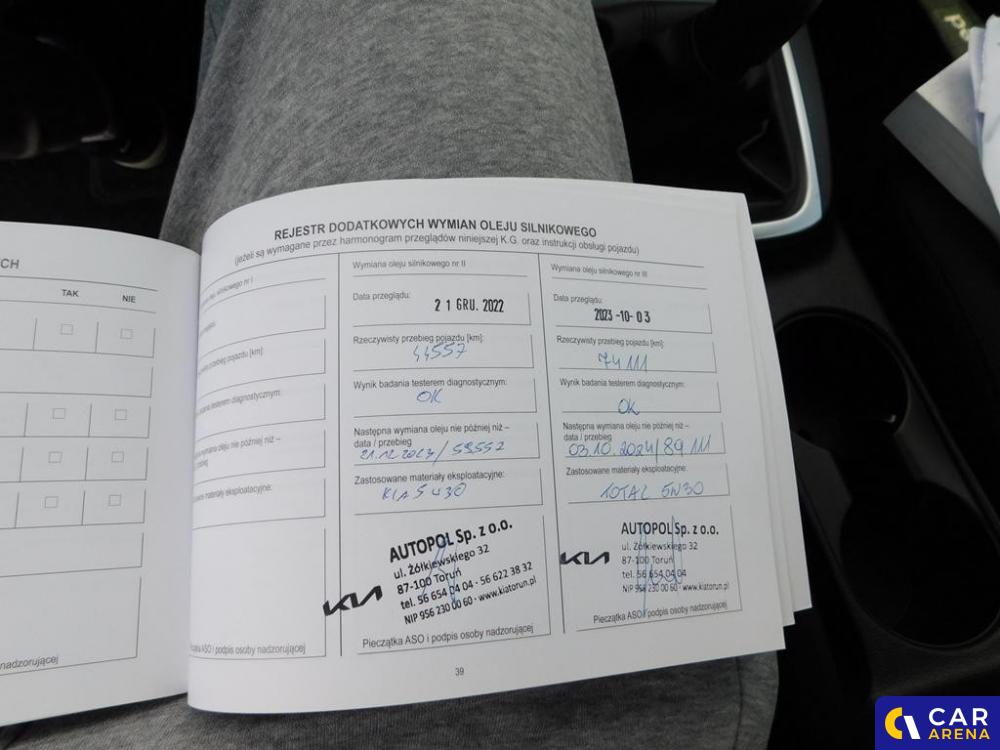 CH
TAK NIE
nadzorującej
REJESTR DODATKOWYCH WYMIAN OLEJU SILNIKOWEGO
(jeżeli są wymagane przez harmonogram przeglądów niniejszej K.G. oraz instrukcji obsługi pojazdu)
oleju silnikowego nr I
przebieg pojazdu [km]:
testerem diagnostycznym:
wymiana oleju nie później niż –
przebieg
materiały eksploatacyjne:
ASO i podpis osoby nadzorującej
Wymiana oleju silnikowego nr II
Data przeglądu:
21 GRU. 2022
Rzeczywisty przebieg pojazdu [km]:
44557
Wynik badania testerem diagnostycznym:
OK
Następna wymiana oleju nie później niż –
data / przebieg
21.12.2023/59557
Zastosowane materiały eksploatacyjne:
KIA 5W30
AUTOPOL Sp. z o.o.
ul. Żółkiewskiego 32
87-100 Toruń
tel. 56 654 04 04 - 56 622 38 32
NIP 956 230 00 60 · www.kiatorun.pl
KIA
Pieczątka ASO i podpis osoby nadzorującej
Wymiana oleju silnikowego nr III
Data przeglądu:
2023-10-03
Rzeczywisty przebieg pojazdu [km]:
74111
Wynik badania testerem diagnostycznym:
OK
Następna wymiana oleju nie później niż –
data / przebieg
03.10.2024/89111
Zastosowane materiały eksploatacyjne:
TOTAL 5W30
AUTOPOL Sp. z o.o.
ul. Żółkiewskiego 32
87-100 Toruń
tel. 56 654 04 04
NIP 956 230 00 60 · www.kiatorun.pl
KIA
Pieczątka ASO i podpis osoby nadzorującej
39
CAR
ARENA